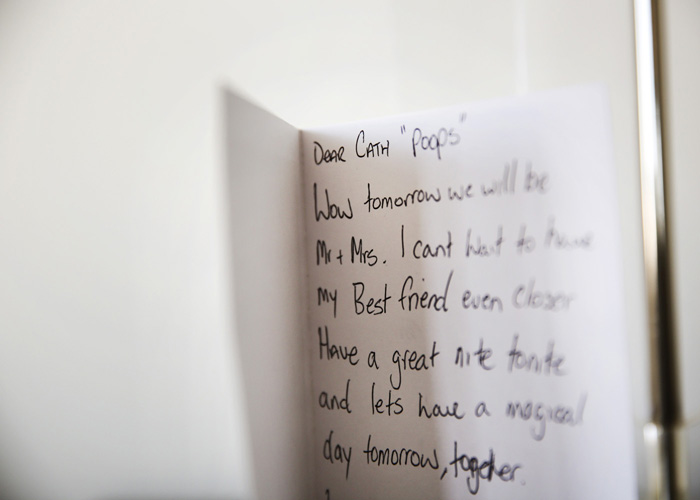 Dear Cath "Poops"
Wow tomorrow we will be
Mr + Mrs. I cant wait to have
my Best friend even closer
Have a great nite tonite
and lets have a magical
day tomorrow, together.